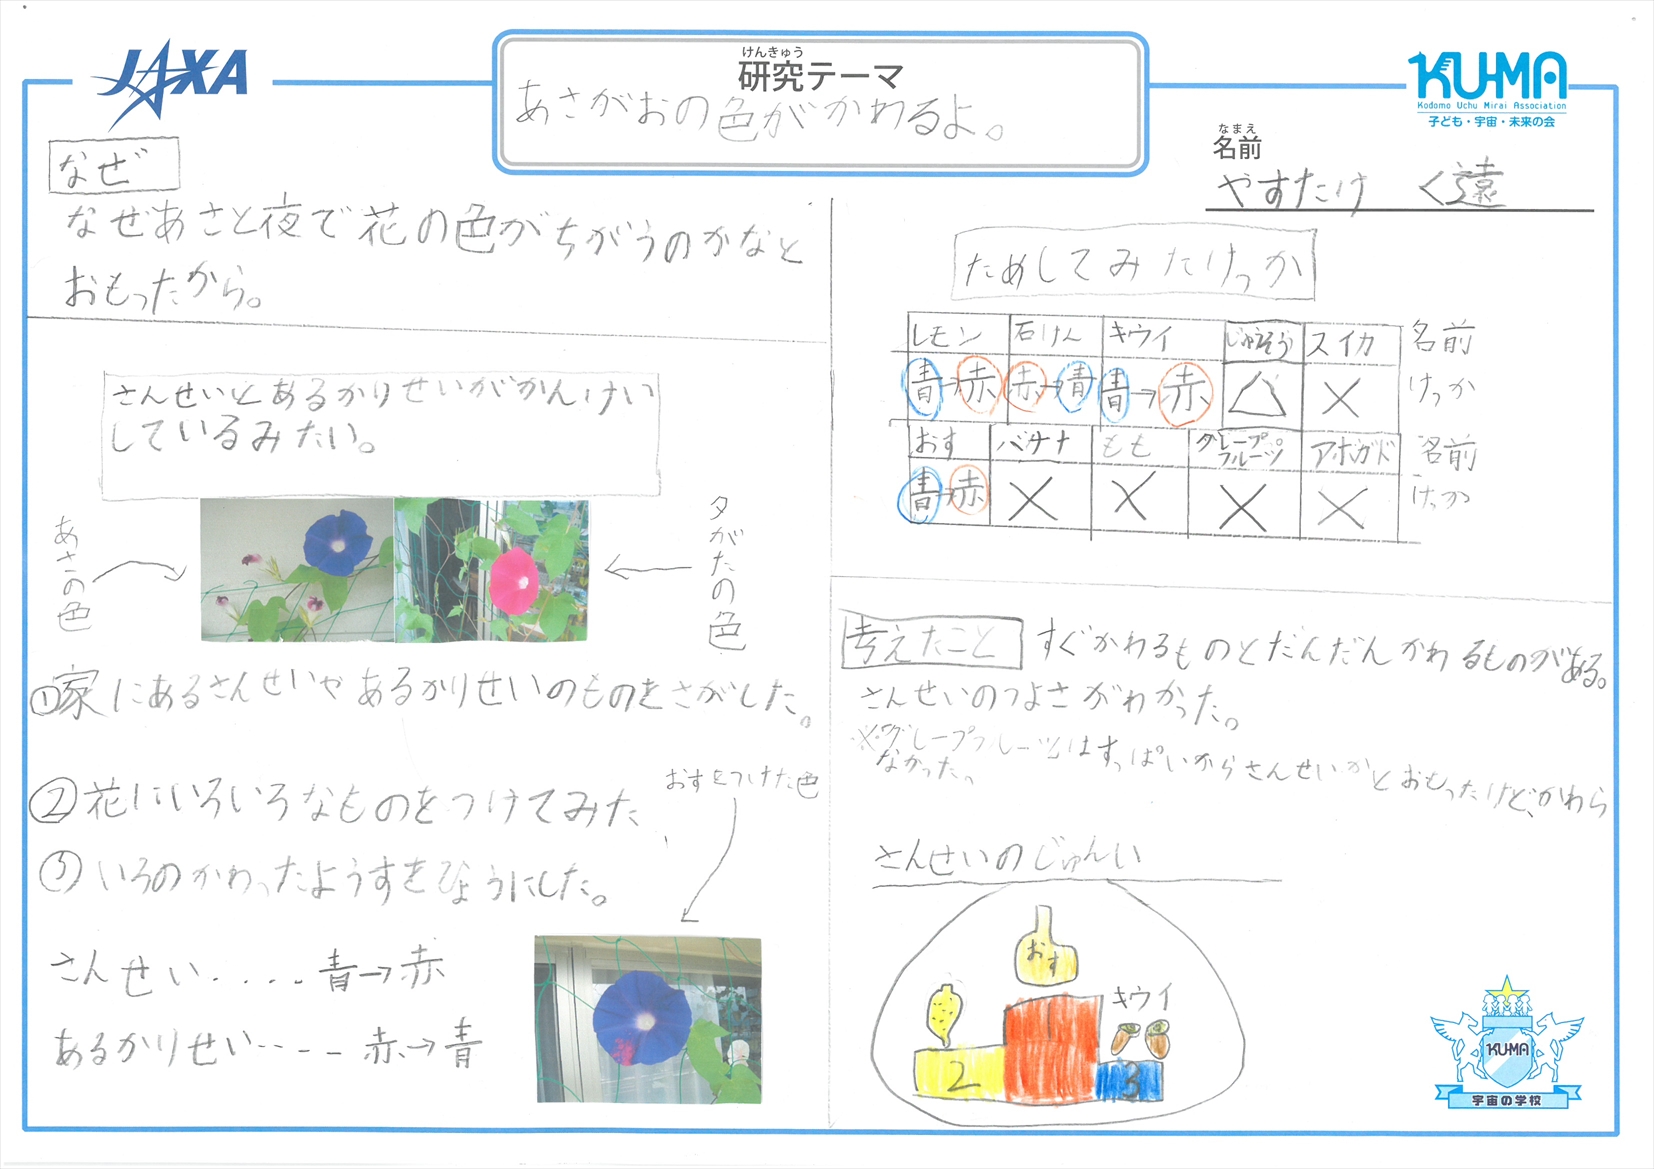 JAXA
けんきゅう
研究テーマ
あさがおの色がかわるよ。
KU-MA
Kodomo Uchu Mirai Association
子ども・宇宙・未来の会
なまえ
名前
やすたけ く遠
なぜ
なぜあさと夜で花の色がちがうのかなと
おもったから。
さんせいとあるかりせいがかんけい
しているみたい。
あさの色
夕がたの色
①家にあるさんせいやあるかりせいのものをさがした。
②花にいろいろなものをつけてみた
③いろのかわったようすをひょうにした。
おすをつけた色
さんせい.....青→赤
あるかりせい....赤→青
ためしてみたけっか
レモン 石けん キウイ じゅうそう スイカ 名前
青→赤 赤→青 青→赤 △ × けっか
おす バナナ もも グレープフルーツ アボガド 名前
青→赤 × × × × けっか
考えたこと すぐかわるものとだんだんかわるものがある。
さんせいのつよさがわかった。
※グレープフルーツはすっぱいからさんせいかとおもったけど、かわら
なかった。
さんせいのじゅんい
おす
キウイ
1
2
3
KU-MA
宇宙の学校